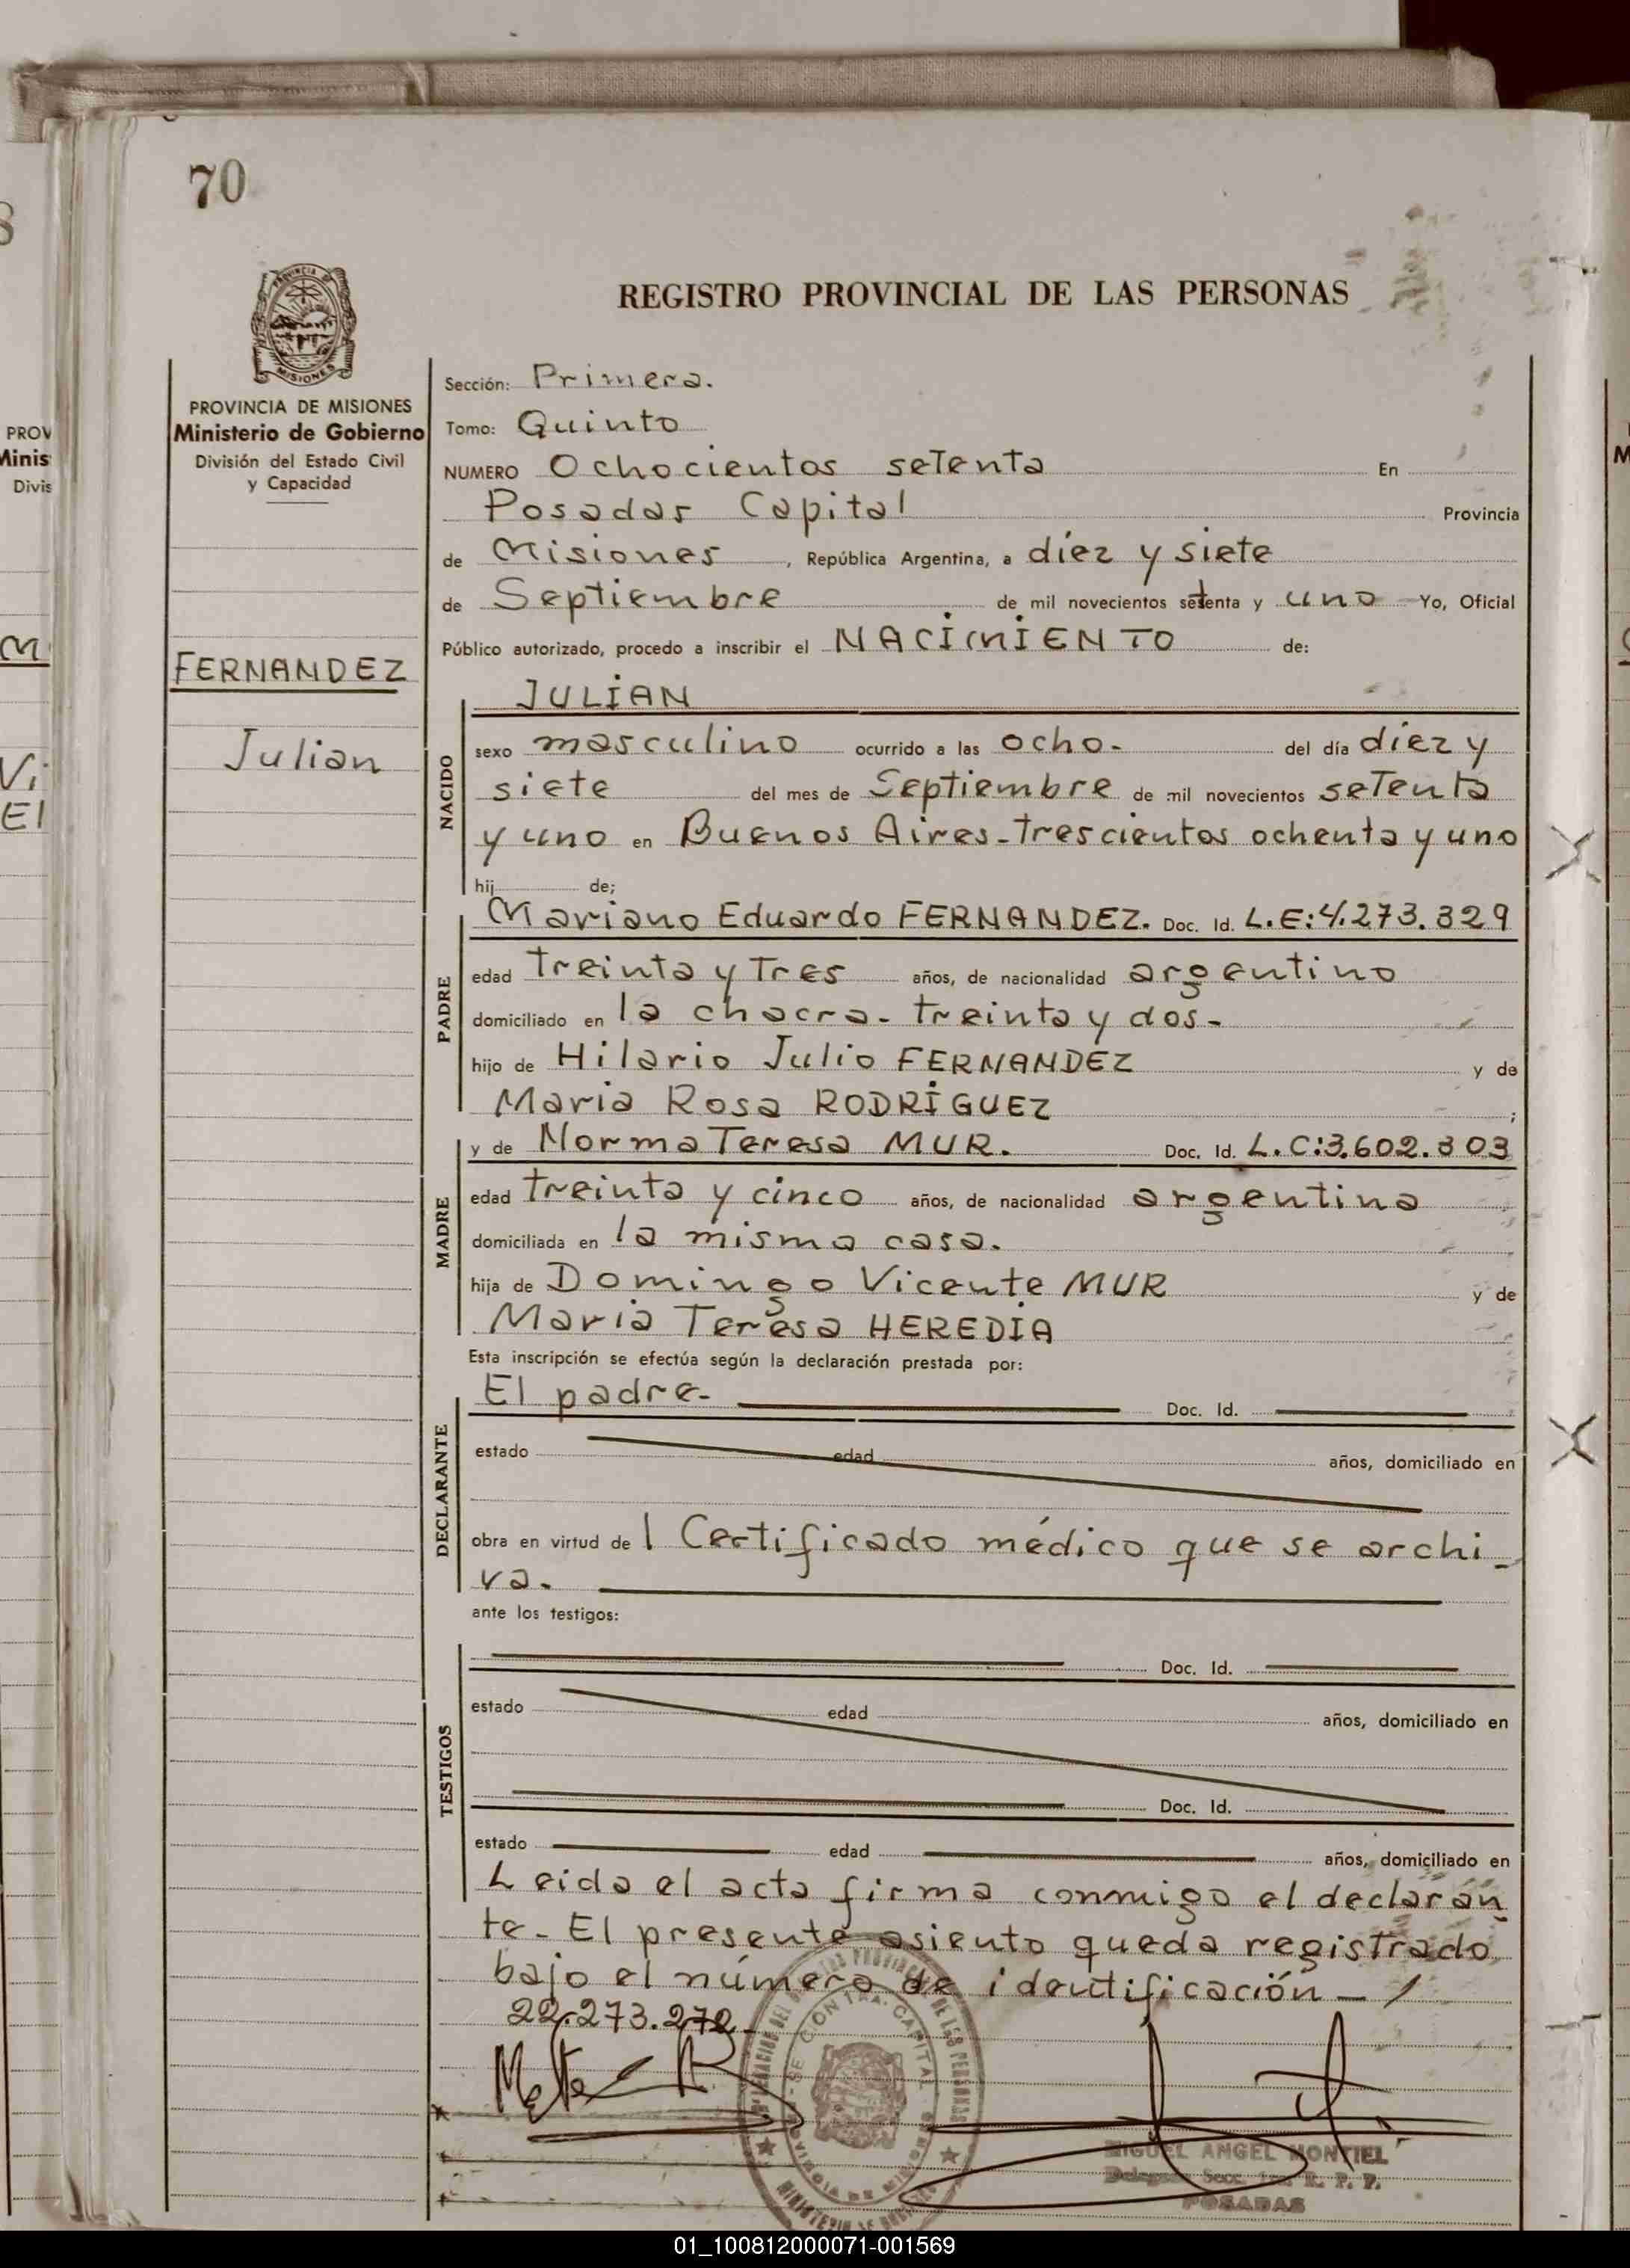 70
REGISTRO PROVINCIAL DE LAS PERSONAS
PROVINCIA DE MISIONES
Ministerio de Gobierno
División del Estado Civil
y Capacidad
FERNANDEZ
Julian
Sección: Primera.
Tomo: Quinto
NUMERO Ochocientos setenta En
Posadas Capital Provincia
de Misiones, República Argentina, a diez y siete
de Septiembre de mil novecientos setenta y uno Yo, Oficial
Público autorizado, procedo a inscribir el NACIMIENTO de:
JULIAN
NACIDO
sexo masculino ocurrido a las ocho.- del día diez y
siete del mes de Septiembre de mil novecientos setenta
y uno en Buenos Aires-trescientos ochenta y uno
hij de;
PADRE
Mariano Eduardo FERNANDEZ. Doc. Id. L.E:4.273.329
edad treinta y tres años, de nacionalidad argentino
domiciliado en la chacra- treinta y dos-
hijo de Hilario Julio FERNANDEZ y de
Maria Rosa RODRIGUEZ ;
MADRE
y de Norma Teresa MUR. Doc. Id. L.C:3.602.303
edad treinta y cinco años, de nacionalidad argentina
domiciliada en la misma casa.
hija de Domingo Vicente MUR y de
Maria Teresa HEREDIA
Esta inscripción se efectúa según la declaración prestada por:
DECLARANTE
El padre- Doc. Id.
estado edad años, domiciliado en
obra en virtud de l Certificado médico que se archi-
va.
ante los testigos:
TESTIGOS
Doc. Id.
estado edad años, domiciliado en
Doc. Id.
estado edad años, domiciliado en
Leida el acta firma conmigo el declaran
te- El presente asiento queda registrado
bajo el número de identificación-
22.273.272-
MIGUEL ANGEL MONTIEL
R. P. P.
POSADAS
01_100812000071-001569